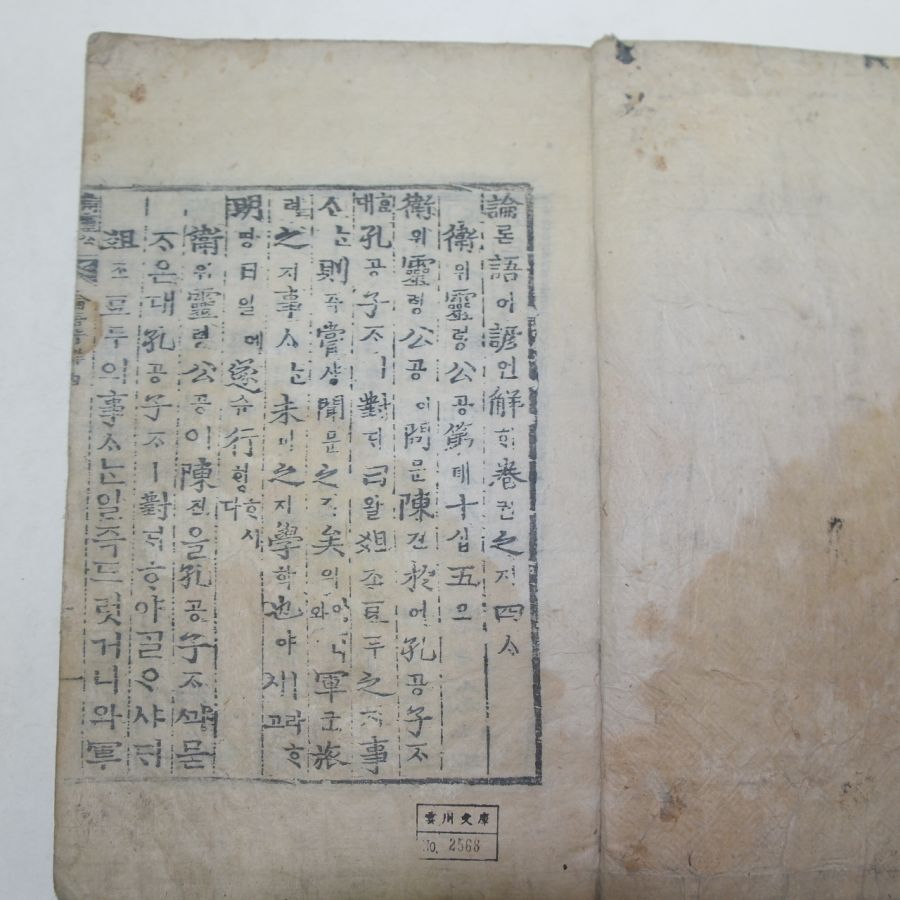 論론語어諺언解ᄒᆡ卷권之지四ᄉᆞ
衛위靈령公공第뎨十십五오
衛위靈령公공이問문陳진於어孔공子ᄌᆞ
ᄒᆞᆫ대孔공子ᄌᆞㅣ對ᄃᆡ曰왈俎조豆두之지事
ᄉᆞᄂᆞᆫ則즉嘗샹聞문之지矣의어니와軍군旅
려之지事ᄉᆞᄂᆞᆫ未미之지學학也야ㅣ라ᄒᆞ시고
明명日일에遂슈行ᄒᆡᆼᄒᆞ시다
衛위靈령公공이陳진을孔공子ᄌᆞᄭᅴ묻
ᄌᆞ온대孔공子ᄌᆞㅣ對ᄃᆡᄒᆞ야ᄀᆞᆯᄋᆞ샤ᄃᆡ
俎조豆두의事ᄉᆞᄂᆞᆫ일즉드럿거니와軍
雲川文庫
No. 2568